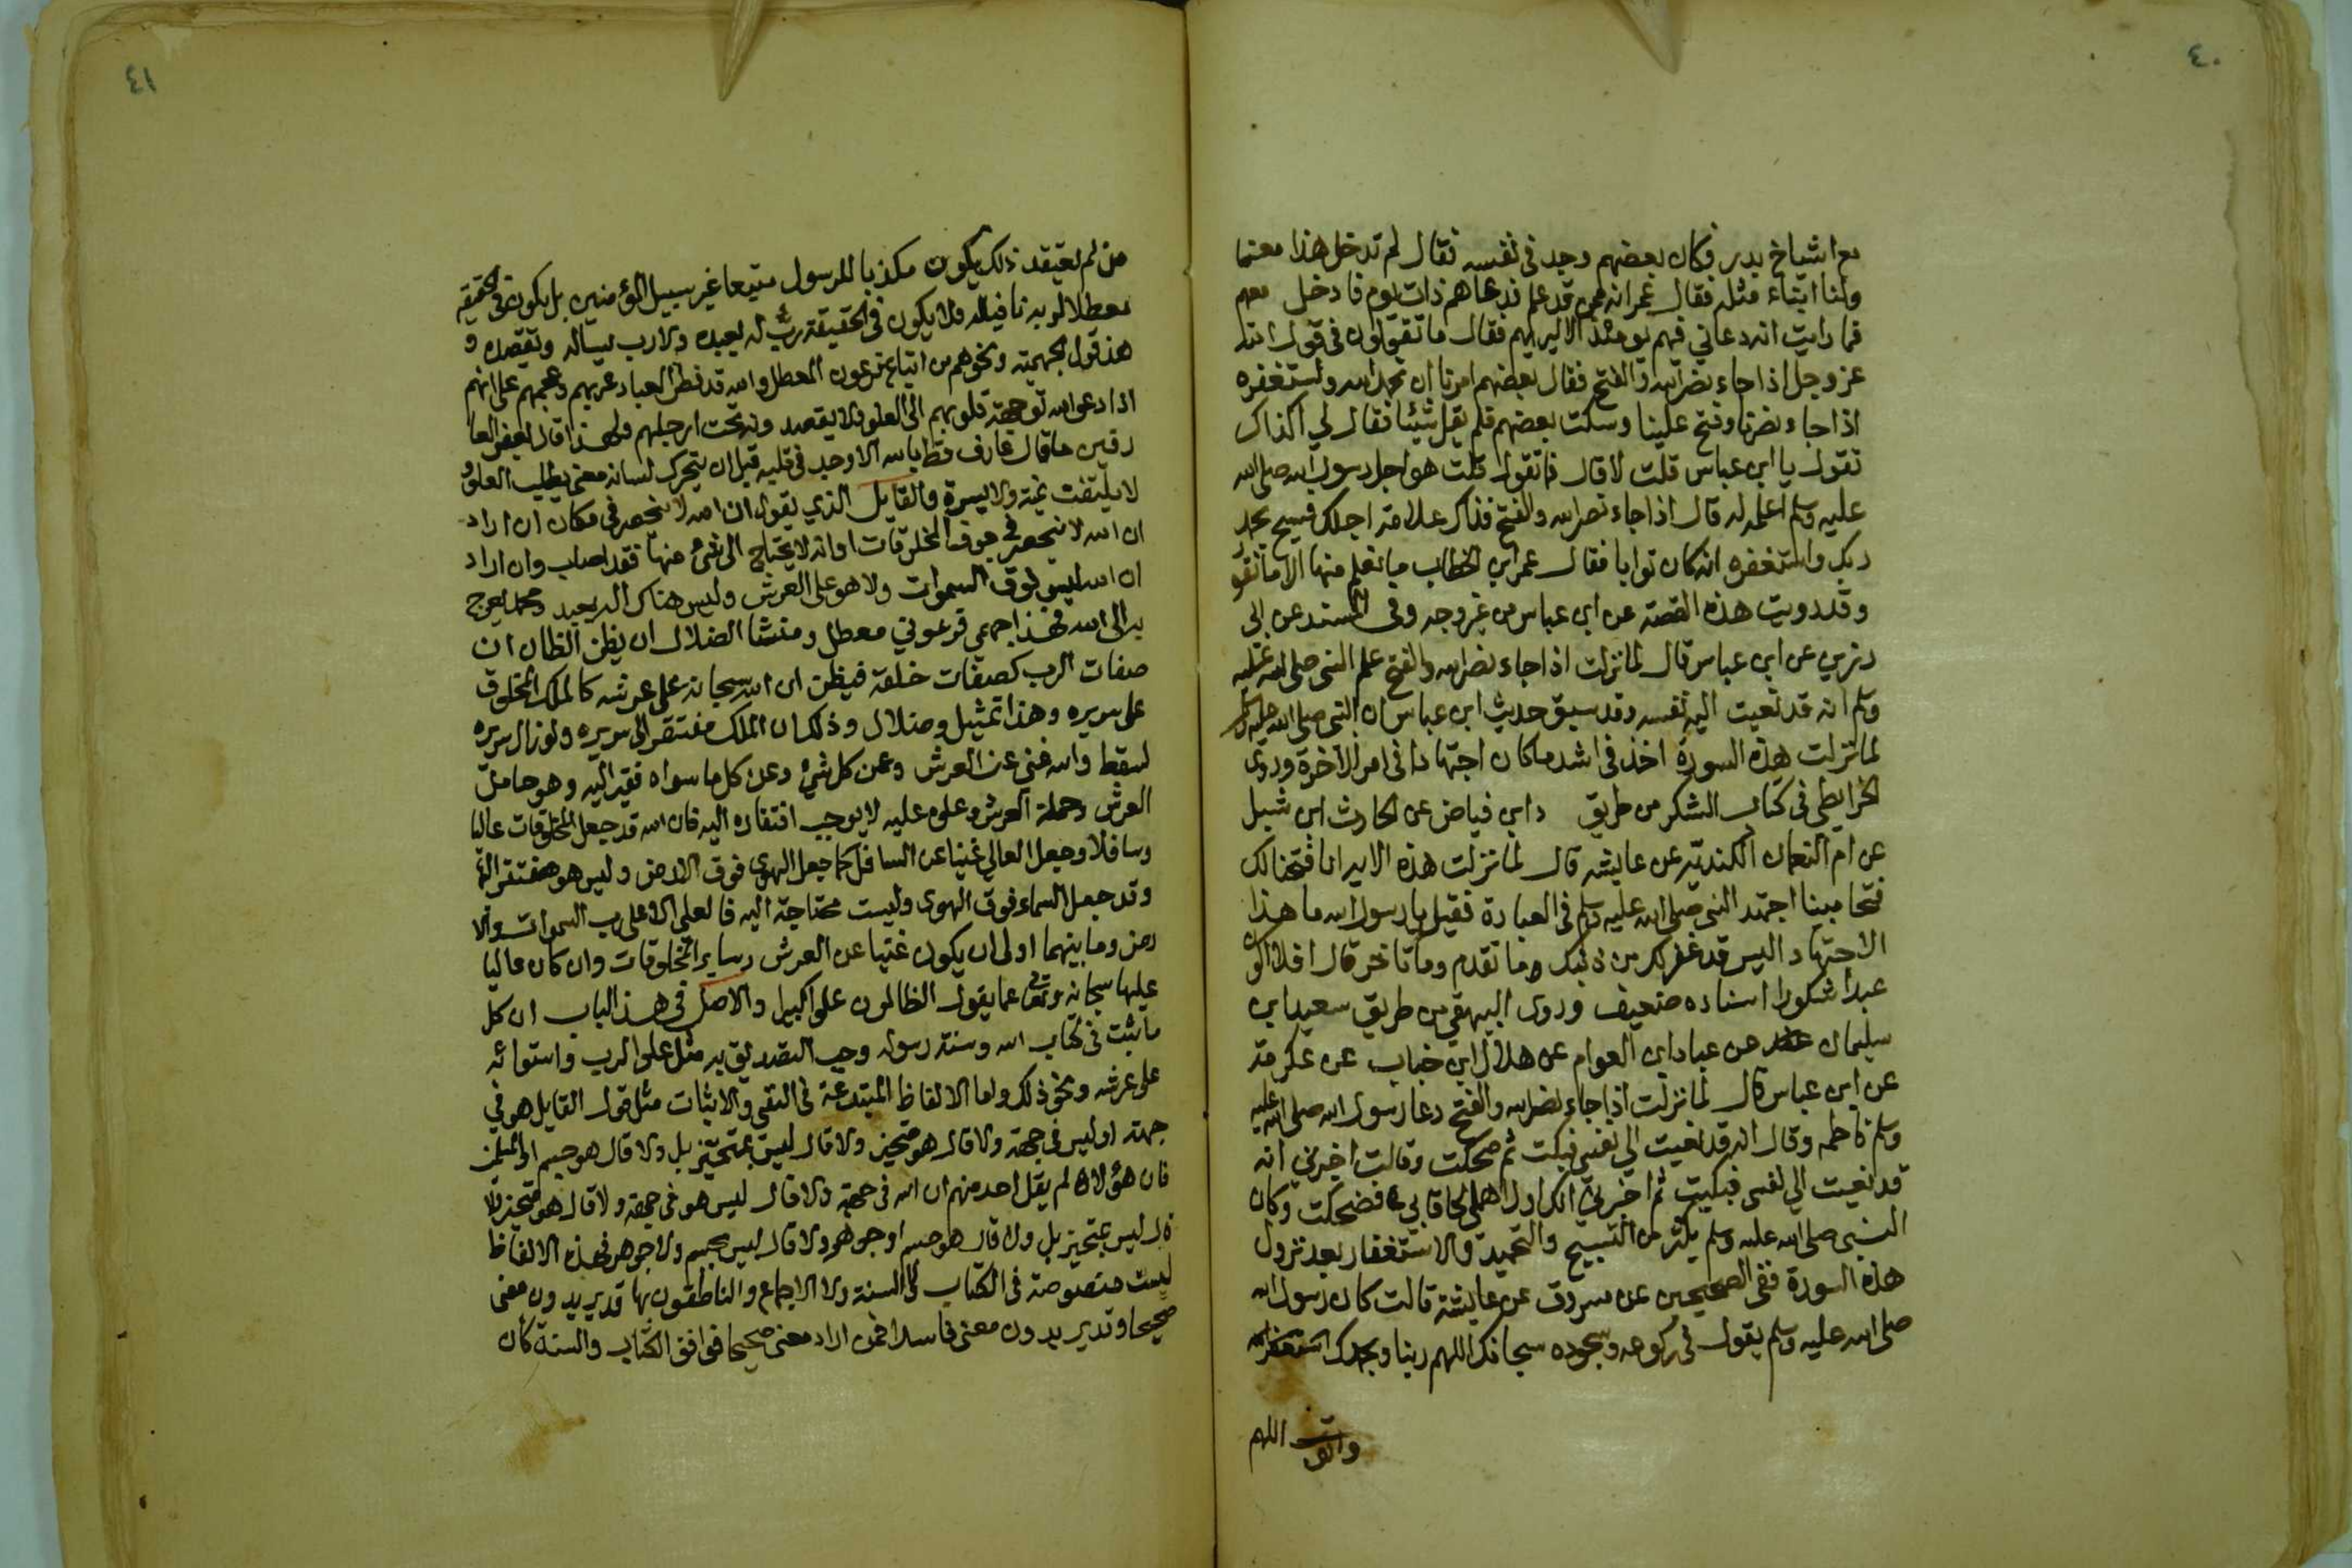 ٤٠
مع اشياخ بدر فكان بعضهم وجد في نفسه فقال لم تدخل هذا معنا
ولنا ابناء مثله فقال عمر انه ممن قد علم فدعاهم ذات يوم فادخل معهم
فما رايت انه دعاني فيهم يومئذ الا ليريهم فقال ما تقولون في قول الله
عز وجل اذا جاء نصر الله والفتح فقال بعضهم امرنا ان نحمد الله ونستغفره
اذا جاء نصرنا وفتح علينا وسكت بعضهم فلم يقل شيئا فقال لي اكذاك
تقول يا ابن عباس قلت لا قال فما تقول قلت هو اجل رسول الله صلى الله
عليه وسلم اعلمه له قال اذا جاء نصر الله والفتح فذاك علامة اجلك فسبح بحمد
ربك واستغفره انه كان توابا فقال عمر ابن الخطاب ما نعلم منها الا ما تقو
وقد رويت هذه القصة عن ابن عباس من غير وجه وفي المسند عن ابى
رزين عن ابن عباس قال لما نزلت اذا جاء نصر الله والفتح علم النبي صلى الله عليه
وسلم انه قد نعيت اليه نفسه وقد سبق حديث ابن عباس ان النبي صلى الله عليه وسلم
لما نزلت هذه السورة اخذ في اشد ما كان اجتهادا في امر الاخرة وروى
الخرايطي في كتاب الشكر من طريق دابن فياض عن الحارث ابن شبل
عن ام النعمان الكندية عن عايشه قال لما نزلت هذه الاية انا فتحنا لك
فتحا مبينا اجتهد النبي صلى الله عليه وسلم في العبادة فقيل يا رسول الله ما هذا
الاجتهاد اليس قد غفر لك من ذنبك وما تقدم وما تاخر قال افلا اكون
عبدا شكورا اسناده ضعيف وروى البيهقي من طريق سعيد ابن
سليمان عن عباد ابن العوام عن هلال ابن خباب عن عكرمة
عن ابن عباس قال لما نزلت اذا جاء نصر الله والفتح دعا رسول الله صلى الله عليه
وسلم فاطمه وقال انه قد نعيت الي نفسي فبكت ثم ضحكت وقالت اخبرني انه
قد نعيت اليه نفسه فبكيت ثم اخبرني انك اول اهلي لحاقا بي فضحكت وكان
النبي صلى الله عليه وسلم يكثر من التسبيح والتحميد والاستغفار بعد نزول
هذه السورة ففي الصحيحين عن مسروق عن عايشة قالت كان رسول الله
صلى الله عليه وسلم يقول في ركوعه وسجوده سبحانك اللهم ربنا وبحمدك
اللهم
٤١
من لم يعتقد ذلك يكون مكذبا للرسول متبعا غير سبيل المؤمنين بل يكون في الحقيقة
معطلا لربه نافيا له فلا يكون في الحقيقة رب له يعبده ولا رب يساله ويقصده و
هذا قول الجهمية ونحوهم من اتباع فرعون المعطل والله قد فطر العباد عربهم وعجمهم على انهم
اذا دعوا الله توجهت قلوبهم الى العلو فلا يقصدونه تحت ارجلهم ولهذا قال بعض العا
رفين ما قال عارف قط يا الله الا وجد في قلبه قبل ان يتحرك لسانه معنى يطلب العلو
لا يلتفت يمنة ولا يسرة والقايل الذي يقول ان الله لا ينحصر في مكان ان اراد
ان الله لا ينحصر في جوف المخلوقات او انه لا يحتاج الى شيء منها فقد اصاب وان اراد
ان الله ليس فوق السموات ولا هو على العرش وليس هناك اله يعبد ومحمد لم يعرج
به الى الله فهذا جهمي فرعوني معطل ومنشا الضلال ان يظن الظان ان
صفات الرب كصفات خلقه فيظن ان الله سبحانه على عرشه كالملك المخلوق
على سريره وهذا تمثيل وضلال وذلك ان الملك مفتقر الى سريره ولو زال سريره
لسقط والله غني عن العرش وعن كل شيء وعن كل ما سواه فقير اليه وهو حامل
العرش وحملة العرش وعلوه عليه لا يوجب افتقاره اليه فان الله قد جعل المخلوقات عاليا
وسافلا وجعل العالي غنيا عن السافل كما جعل الهوى فوق الارض وليس هو مفتقر اليها
وقد جعل السماء فوق الهوى وليست محتاجة اليه فالعلي الاعلى رب السموات والا
رض وما بينهما اولى ان يكون غنيا عن العرش وساير المخلوقات وان كان عاليا
عليها سبحانه وتعالى عما يقول الظالمون علوا كبيرا والاصل في هذا الباب ان كل
ما ثبت في كتاب الله وسنة رسوله وجب التصديق به مثل علو الرب واستوائه
على عرشه ونحو ذلك واما الالفاظ المبتدعة في النفي والاثبات مثل قول القايل هو في
جهة او ليس في جهة ولا قال هو متحيز ولا قال ليس بمتحيز بل ولا قال هو جسم
فان هؤلاء لم يقل احد منهم ان الله في جهة ولا قال ليس هو في جهة ولا قال هو متحيز ولا
قال ليس بمتحيز بل ولا قال هو جسم او جوهر ولا قال ليس بجسم ولا جوهر فهذه الالفاظ
ليست منصوصة في الكتاب ولا السنة ولا الاجماع والناطقون بها قد يريدون معنى
صحيحا وقد يريدون معنى فاسدا فمن اراد معنى صحيحا فوافق الكتاب والسنة كان